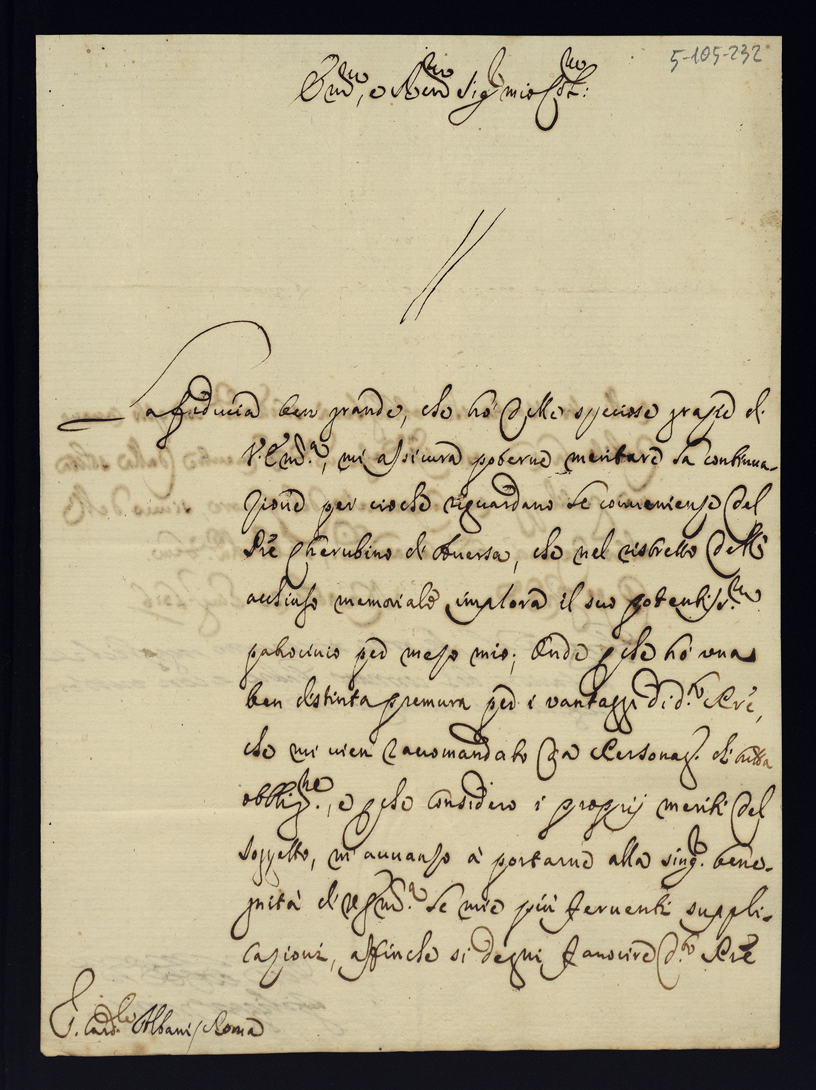 5-105-232
Em.mo, e Rev.mo Sig.r mio Col.mo:
La fiducia ben grande, che hò delle speciose grazie di
V. Em.a, mi assicura poterne meritare la continua-
zione per cioche riguardano le convenienze del
Pre Cherubino di Aversa, che nel ristretto dell'
acchiuso memoriale implora il suo potentiss.mo
patrocinio per mezo mio; Onde perche hò una
ben distinta premura per i vantaggi di d.to Pre,
che mi vien raccomandato da Personag. di tutta
obblig.ne, e perche considero i proprij meriti del
soggetto, m'avvanzo à portarne alla sing.r beni-
gnità di V. Em.a le mie più ferventi suppli-
cazioni, affinche si degni favorire d.to Pre
S. Card.le Albani / Roma